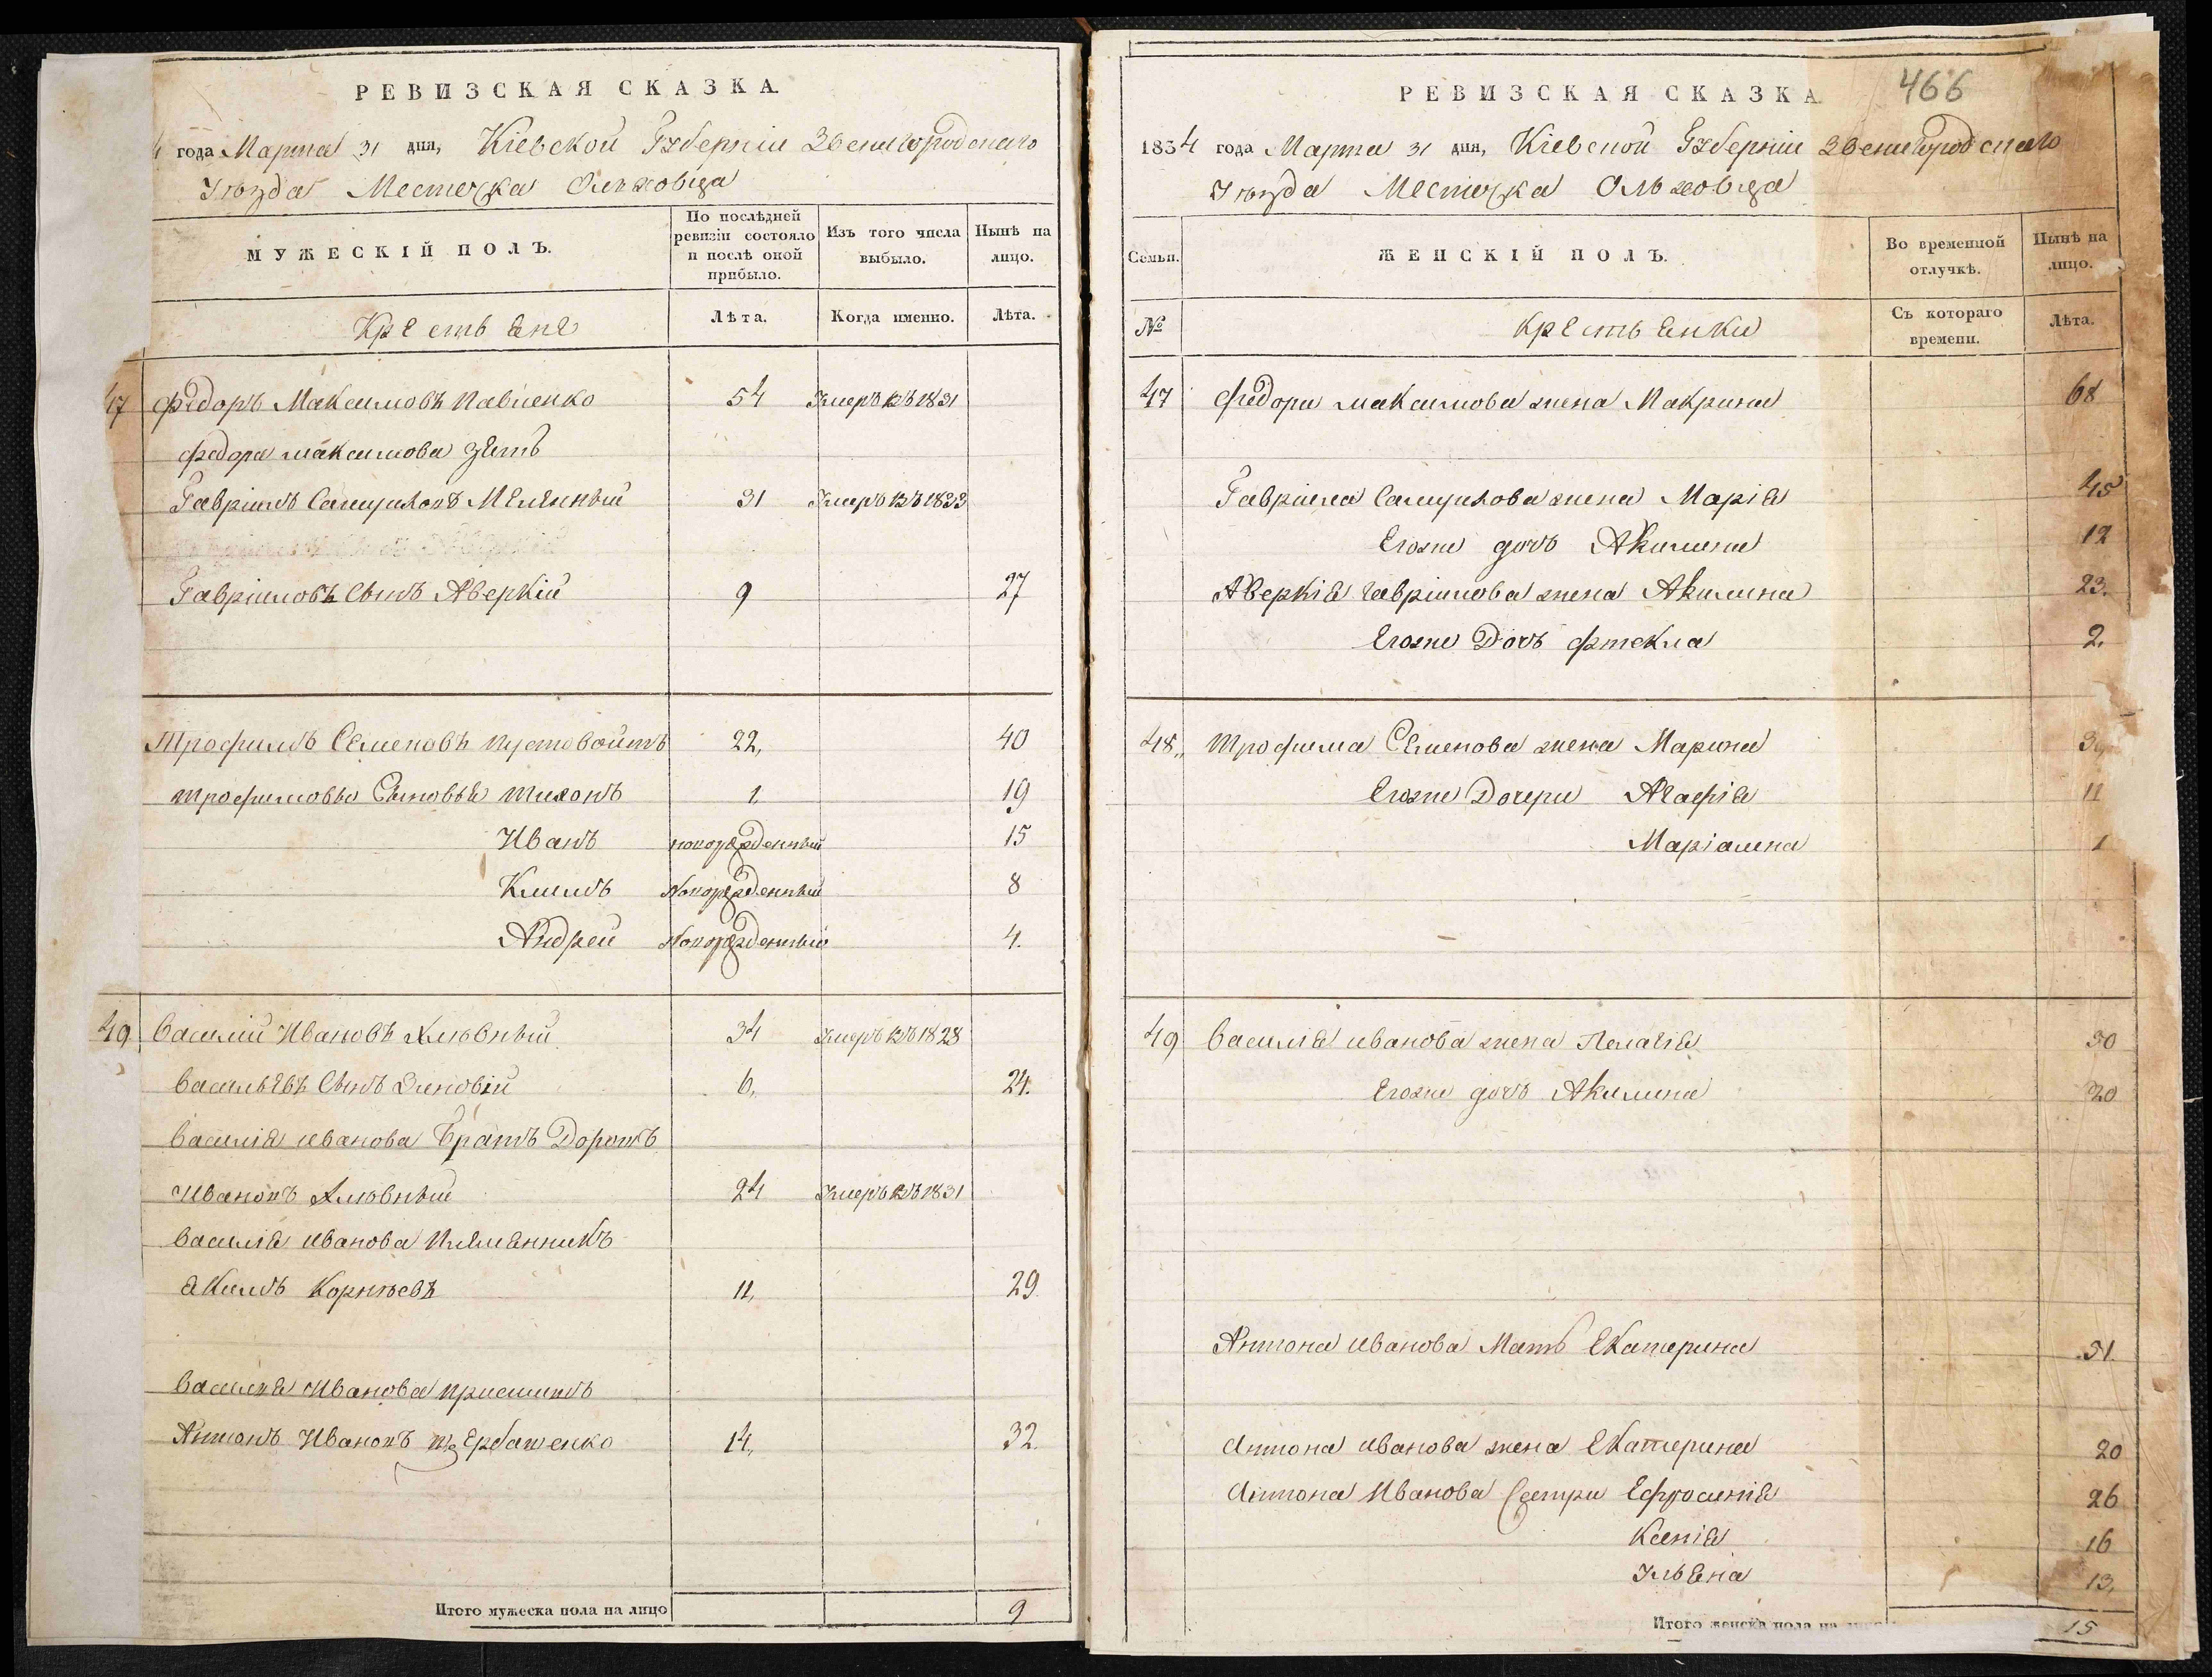 РЕВИЗСКАЯ СКАЗКА.
года Марта 31 дня, Кіевской Губерніи Звенигородскаго
Уѣзда Местечка Ольховца
МУЖЕСКІЙ ПОЛЪ.
По послѣдней ревизіи состояло и послѣ оной прибыло.
Изъ того числа выбыло.
Нынѣ на лицо.
Крестьяне
Лѣта.
Когда именно.
Лѣта.
47 Федоръ Максимовъ Павленко 54 Умеръ въ 1831
Федора Максимова зять
Гавріилъ Самуиловъ 31 Умеръ въ 1833
Гавріиловъ Сынъ Аверкій 9 27
Трофимъ Семеновъ Пустовойтъ 22, 40
Трофимовы Сыновья Тихонъ 1. 19
Иванъ новорожденный 15
Климъ Новорожденный 8
Андрей Новорожденный 4.
49 Василий Ивановъ 34 Умеръ въ 1828
Васильевъ Сынъ Зиновій 6, 24.
Василія Иванова Братъ
Ивановъ 24 Умеръ въ 1831
Василія Иванова Племянникъ
Акимъ Корнѣевъ 11, 29.
Василія Иванова
Антонъ Ивановъ 14, 32.
Итого мужеска пола на лицо 9
466
РЕВИЗСКАЯ СКАЗКА
1834 года Марта 31 дня, Кіевской Губерніи Звенигородскаго
Уѣзда Местечка Ольховца
Семьи.
ЖЕНСКІЙ ПОЛЪ.
Во временной отлучкѣ.
Нынѣ на лицо.
№
Крестьянки
Съ котораго времени.
Лѣта.
47 Федора Максимова жена Макрина 68
Гавріила Самуилова жена Марія 45
Егоже дочь Акилина 12
Аверкія Гавріилова жена Акилина 23.
Егоже Дочь Фтекла 2.
48,, Трофима Семенова жена Марина
Егоже Дочери Агафія 11
Маріамна 1
49 Василія Иванова жена Пелагія 50
Егоже дочь Акилина 20
Антона Иванова Мать Екатерина 51.
Антона Иванова жена Екатерина 20
Антона Иванова Сестри Ефросинія 26
Ксенія 16
Ульяна 13,
Итого женска пола на 15